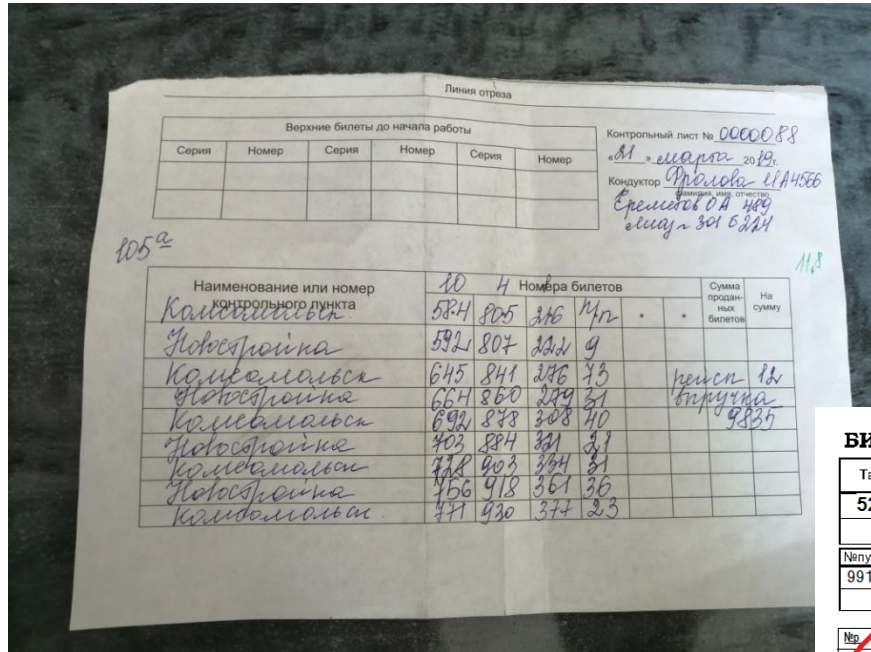 Линия отреза
Верхние билеты до начала работы
Серия Номер Серия Номер Серия Номер
Контрольный лист № 0000088
«21» марта 2019г.
Кондуктор Фролова ИА4566
фамилия, имя, отчество
Ереметов ОА 489
Лиаз 301 6224
105а
11,8
Наименование или номер контрольного пункта
10 4 Номера билетов
Сумма продан-ных билетов
На сумму
Комсомольск 584 805 216 п/п
Новостройка 592 807 222 9
Комсомольск 645 841 276 73 рейсп 12
Новостройка 664 860 279 31 выручка
Комсомольск 692 878 308 40 9835
Новостройка 703 884 321 21
Комсомольск 728 903 334 31
Новостройка 756 918 361 36
Комсомольск 771 930 377 23
БИ
Та
52
№пу
991
№р